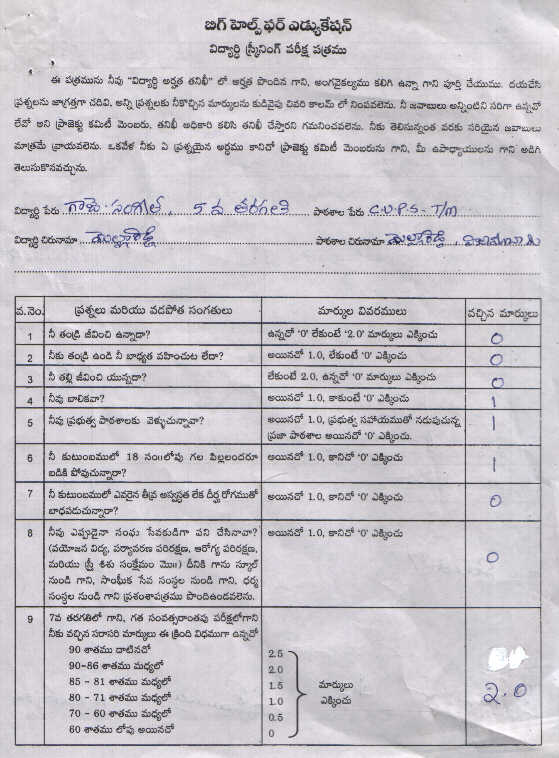 బిగ్ హెల్ప్ ఫర్ ఎడ్యుకేషన్
విద్యార్థి స్క్రీనింగ్ పరీక్ష పత్రము
ఈ పత్రమును నీవు "విద్యార్థి అర్హత తనిఖీ" లో అర్హత పొందిన గాని, అంగవైకల్యము కలిగి ఉన్నా గాని పూర్తి చేయుము. దయచేసి
ప్రశ్నలను జాగ్రత్తగా చదివి, అన్ని ప్రశ్నలకు నీకొచ్చిన మార్కులను కుడివైపు చివరి కాలమ్ లో నింపవలెను. నీ జవాబులు అన్నింటిని సరిగా ఉన్నవో
లేవో అని ప్రాజెక్టు కమిటీ మెంబరు, తనిఖీ అధికారి కలిసి తనిఖీ చేస్తారని గమనించవలెను. నీకు తెలిసున్నంత వరకు సరియైన జవాబులు
మాత్రమే వ్రాయవలెను. ఒకవేళ నీకు ఏ ప్రశ్నయైన అర్థము కానిచో ప్రాజెక్టు కమిటీ మెంబరును గాని, మీ ఉపాధ్యాయులను గాని అడిగి
తెలుసుకొనవచ్చును.
విద్యార్థి పేరు 5 వ తరగతి పాఠశాల పేరు C.U.P.S - T/M
విద్యార్థి చిరునామా ముల్లారెడ్డి పాఠశాల చిరునామా ముల్లారెడ్డి,
వ.నెం. ప్రశ్నలు మరియు వడపోత సంగతులు మార్కుల వివరములు వచ్చిన మార్కులు
1 నీ తండ్రి జీవించి ఉన్నాడా? ఉన్నచో '0' లేకుంటే '2.0' మార్కులు ఎక్కించు 0
2 నీకు తండ్రి ఉండి నీ బాధ్యత వహించుట లేదా? అయినచో 1.0, లేకుంటే '0' ఎక్కించు 0
3 నీ తల్లి జీవించి యున్నదా? లేకుంటే 2.0, ఉన్నచో '0' మార్కులు ఎక్కించు 0
4 నీవు బాలికవా? అయినచో 1.0, కాకుంటే '0' ఎక్కించు 1
5 నీవు ప్రభుత్వ పాఠశాలకు వెళ్ళుచున్నావా? అయినచో 1.0, ప్రభుత్వ సహాయముతో నడుపుచున్న 1
ప్రజా పాఠశాల అయినచో '0' ఎక్కించు.
6 నీ కుటుంబములో 18 సం॥లోపు గల పిల్లలందరూ అయినచో 1.0, కానిచో '0' ఎక్కించు 1
బడికి పోవుచున్నారా?
7 నీ కుటుంబములో ఎవరైన తీవ్ర అస్వస్థత లేక దీర్ఘ రోగముతో అయినచో 1.0, కానిచో '0' ఎక్కించు 0
బాధపడుచున్నారా?
8 నీవు ఎప్పుడైనా సంఘ సేవకుడిగా పని చేసినావా? అయినచో 1.0, కానిచో '0' ఎక్కించు 0
(వయోజన విద్య, పర్యావరణ పరిరక్షణ, ఆరోగ్య పరిరక్షణ,
మరియు స్త్రీ శిశు సంక్షేమం మొ॥) దీనికి గాను స్కూల్
నుండి గాని, సాంఘీక సేవ సంస్థల నుండి గాని, ధర్మ
సంస్థల నుండి గాని ప్రశంశాపత్రము పొందిఉండవలెను.
9 7వ తరగతిలో గాని, గత సంవత్సరాంతపు పరీక్షలోగాని
నీకు వచ్చిన సరాసరి మార్కులు ఈ క్రింది విధముగా ఉన్నచో
90 శాతము దాటినచో 2.5
90-86 శాతము మధ్యలో 2.0
85 - 81 శాతము మధ్యలో 1.5 మార్కులు 2.0
80 - 71 శాతము మధ్యలో 1.0 ఎక్కించు
70 - 60 శాతము మధ్యలో 0.5
60 శాతము లోపు అయినచో 0